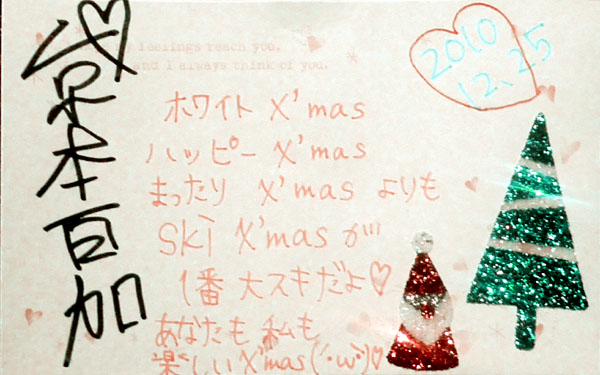 京本有加
y feelings reach you,
and I always think of you.
2010
12.25
ホワイト X'mas
ハッピー X'mas
まったり X'mas よりも
ski X'mas が
1番 大スキだよ♡
あなたも 私も
楽しい X'mas(´･ω･`)♡